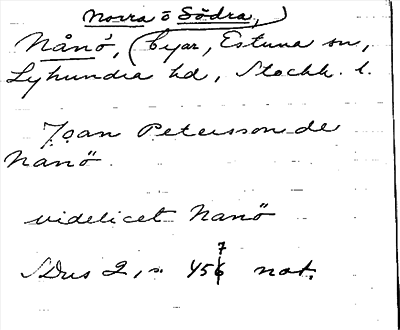 Norra o Södra,)
Nånö, (byar, Estuna sn,
Lyhundra hd, Stockh. l.
Joan Petersson de
Nanö.
videlicet Nanö
SDns 2, s. 457 not.